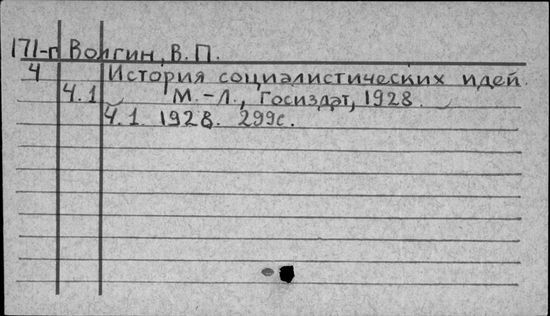 171-п Волгин, В. П.
4 История социалистических идей.
Ч.1 М.-Л., Госиздат, 1928.
Ч.1. 1928. 299с.